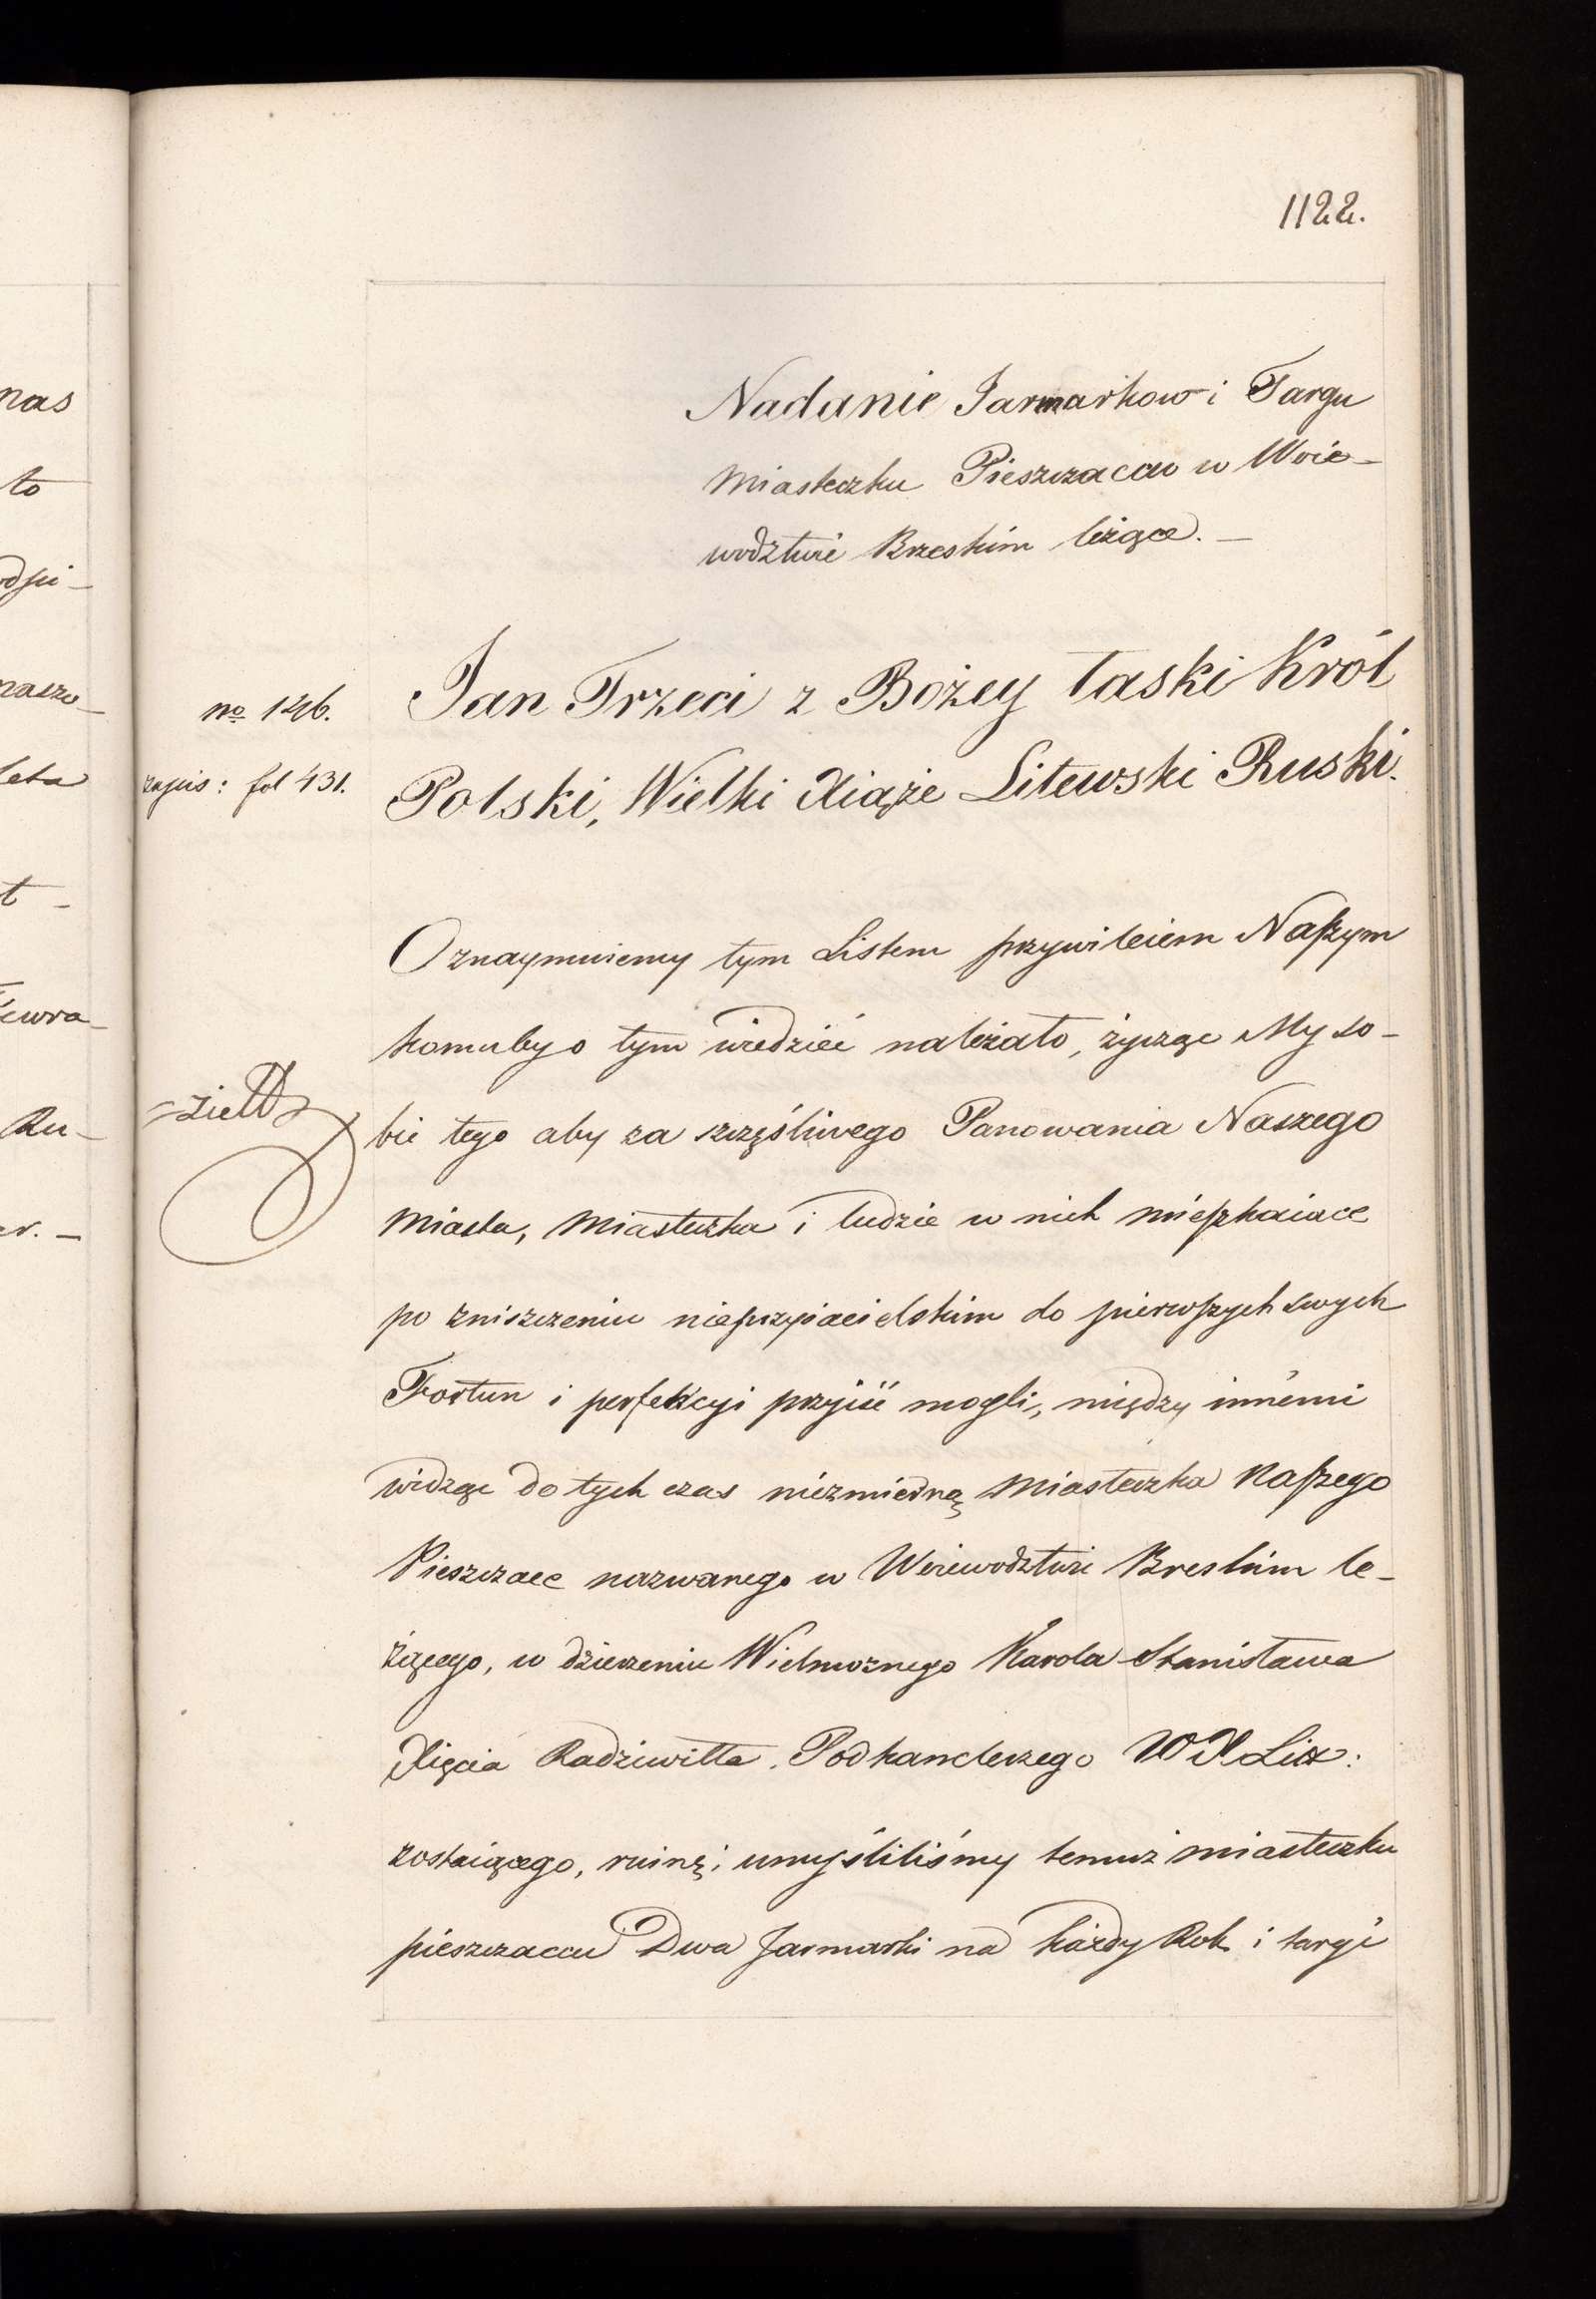 nas
to
naszo_
t _
Ru_
1122.
Nadanie Jarmarkow i Targu
Miasteczku Pieszczacow w Woie_
wodztwie Brzeskim leżące. _
no 126.
zapis: fol 431.
Jan Trzeci z Bożey łaski Król
Polski, Wielki Xiąże Litewski Ruski.
Oznaymuiemy tym Listem przywileiem Naszym
komuby o tym wiedzieć należało, życząc My so_
bie tego aby za szczęśliwego Panowania Naszego
Miasta, Miasteczka i ludzie w nich mieszkaiace
po zniszczeniu nieprzyiacielskim do pierwszych swych
Fortun i perfekcyi przyiść mogli, między innemi
widząc do tych czas niezmierną Miasteczka Naszego
Pieszczace nazwanego w Woiewodztwie Breskim le_
żącego, w dzierzeniu Wielmoznego Karola Stanisława
Xięcia Radziwiłła. Podkanclerzego W X Lit:
zostaiącego, ruinę; umyśliliśmy temuż miasteczku
pieszczacau Dwa Jarmarki na każdy Rok i targi